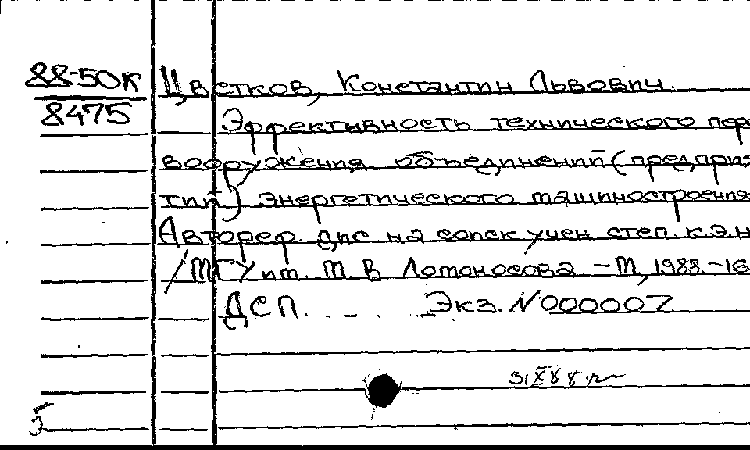 88-50К Цветков, Константин Львович.
8475 Эффективность технического пере
вооружения объединений (предприя
тий) энергетического машиностроения
Автореф. дис на соиск учен степ. к.э.н
/МГУ им. М В Ломоносова - М, 1988 - 16
ДСП. Экз. N000007